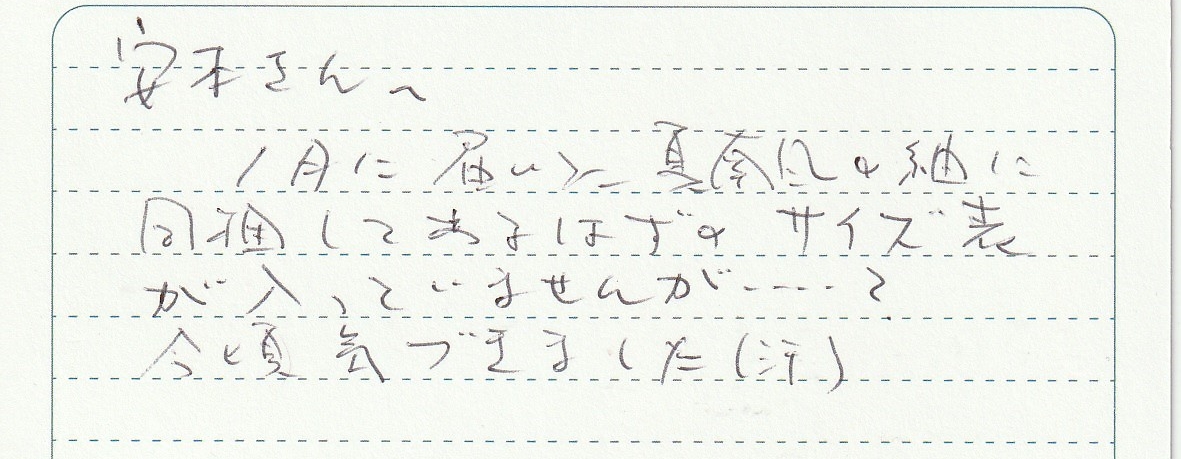 安本さんへ
1月に届いた夏南風の紬に
同梱してあるはずのサイズ表
が入っていませんが‥‥?
今頃気づきました(汗)